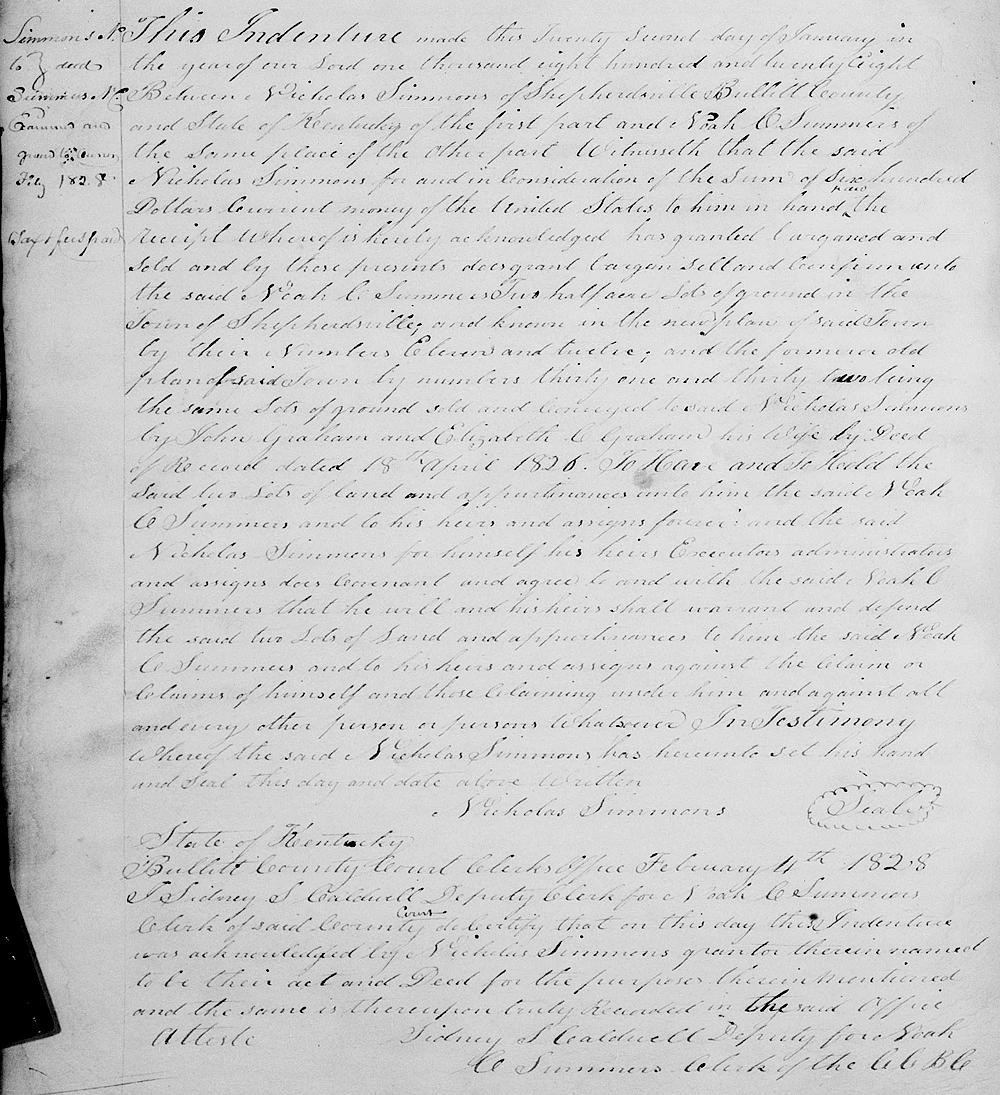 Simmons N.
to } deed
Summers N C.
Examined and
Feby 1828
Tax & fees paid
This Indenture made this Twenty Second day of January in
the year of our Lord one thousand eight hundred and twenty Eight
Between Nicholas Simmons of Shepherdsville Bullitt County
and State of Kentucky of the first part and Noah C Summers of
the Same place of the Other part Witnesseth that the said
Nicholas Simmons for and in Consideration of the Sum of Six hundred
Dollars Current money of the United States to him in hand paid the
receipt Whereof is hereby acknowledged has granted barganed and
Sold and by these presents does grant bargen Sell and Confirm unto
the said Noah C Summers Two half acre Lots of ground in the
Town of Shepherdsville, and known in the new plan of said Town
by their Numbers Eleven and twelve; and the former or old
plan of said Town by numbers thirty one and thirty two being
the same Lots of ground sold and Conveyed to said Nicholas Simmons
by John Graham and Elizabeth C Graham his Wife by Deed
of Record dated 18th April 1826. To Have and To Hold the
Said two Lots of land and appurtinances unto him the said Noah
C Summers and to his heirs and assigns forever: and the said
Nicholas Simmons for himself his heirs Executors administrators
and assigns does Covenant and agree to and with the said Noah C
Summers that he will and his heirs shall warrant and defend
the said two Lots of Land and appurtinances to him the said Noah
C Summers and to his heirs and assigns against the Claim or
Claims of himself and those Claiming under him and against all
and every other person or persons Whatsoever In Testimony
Whereof the said Nicholas Simmons has hereunto set his hand
and Seal this day and date above Written
Nicholas Simmons Seal
State of Kentucky
Bullitt County Court Clerks Office February 4th 1828
I Sidney S Caldwell Deputy Clerk for Noah C Summers
Clerk of said County Court do Certify that on this day this Indenture
was acknowledged by Nicholas Simmons grantor therein named
to be their act and Deed for the purposes therein mentioned
and the same is thereupon truly Recorded in the said Office
Atteste Sidney S Caldwell Deputy for Noah
C Summers Clerk of the C C B C